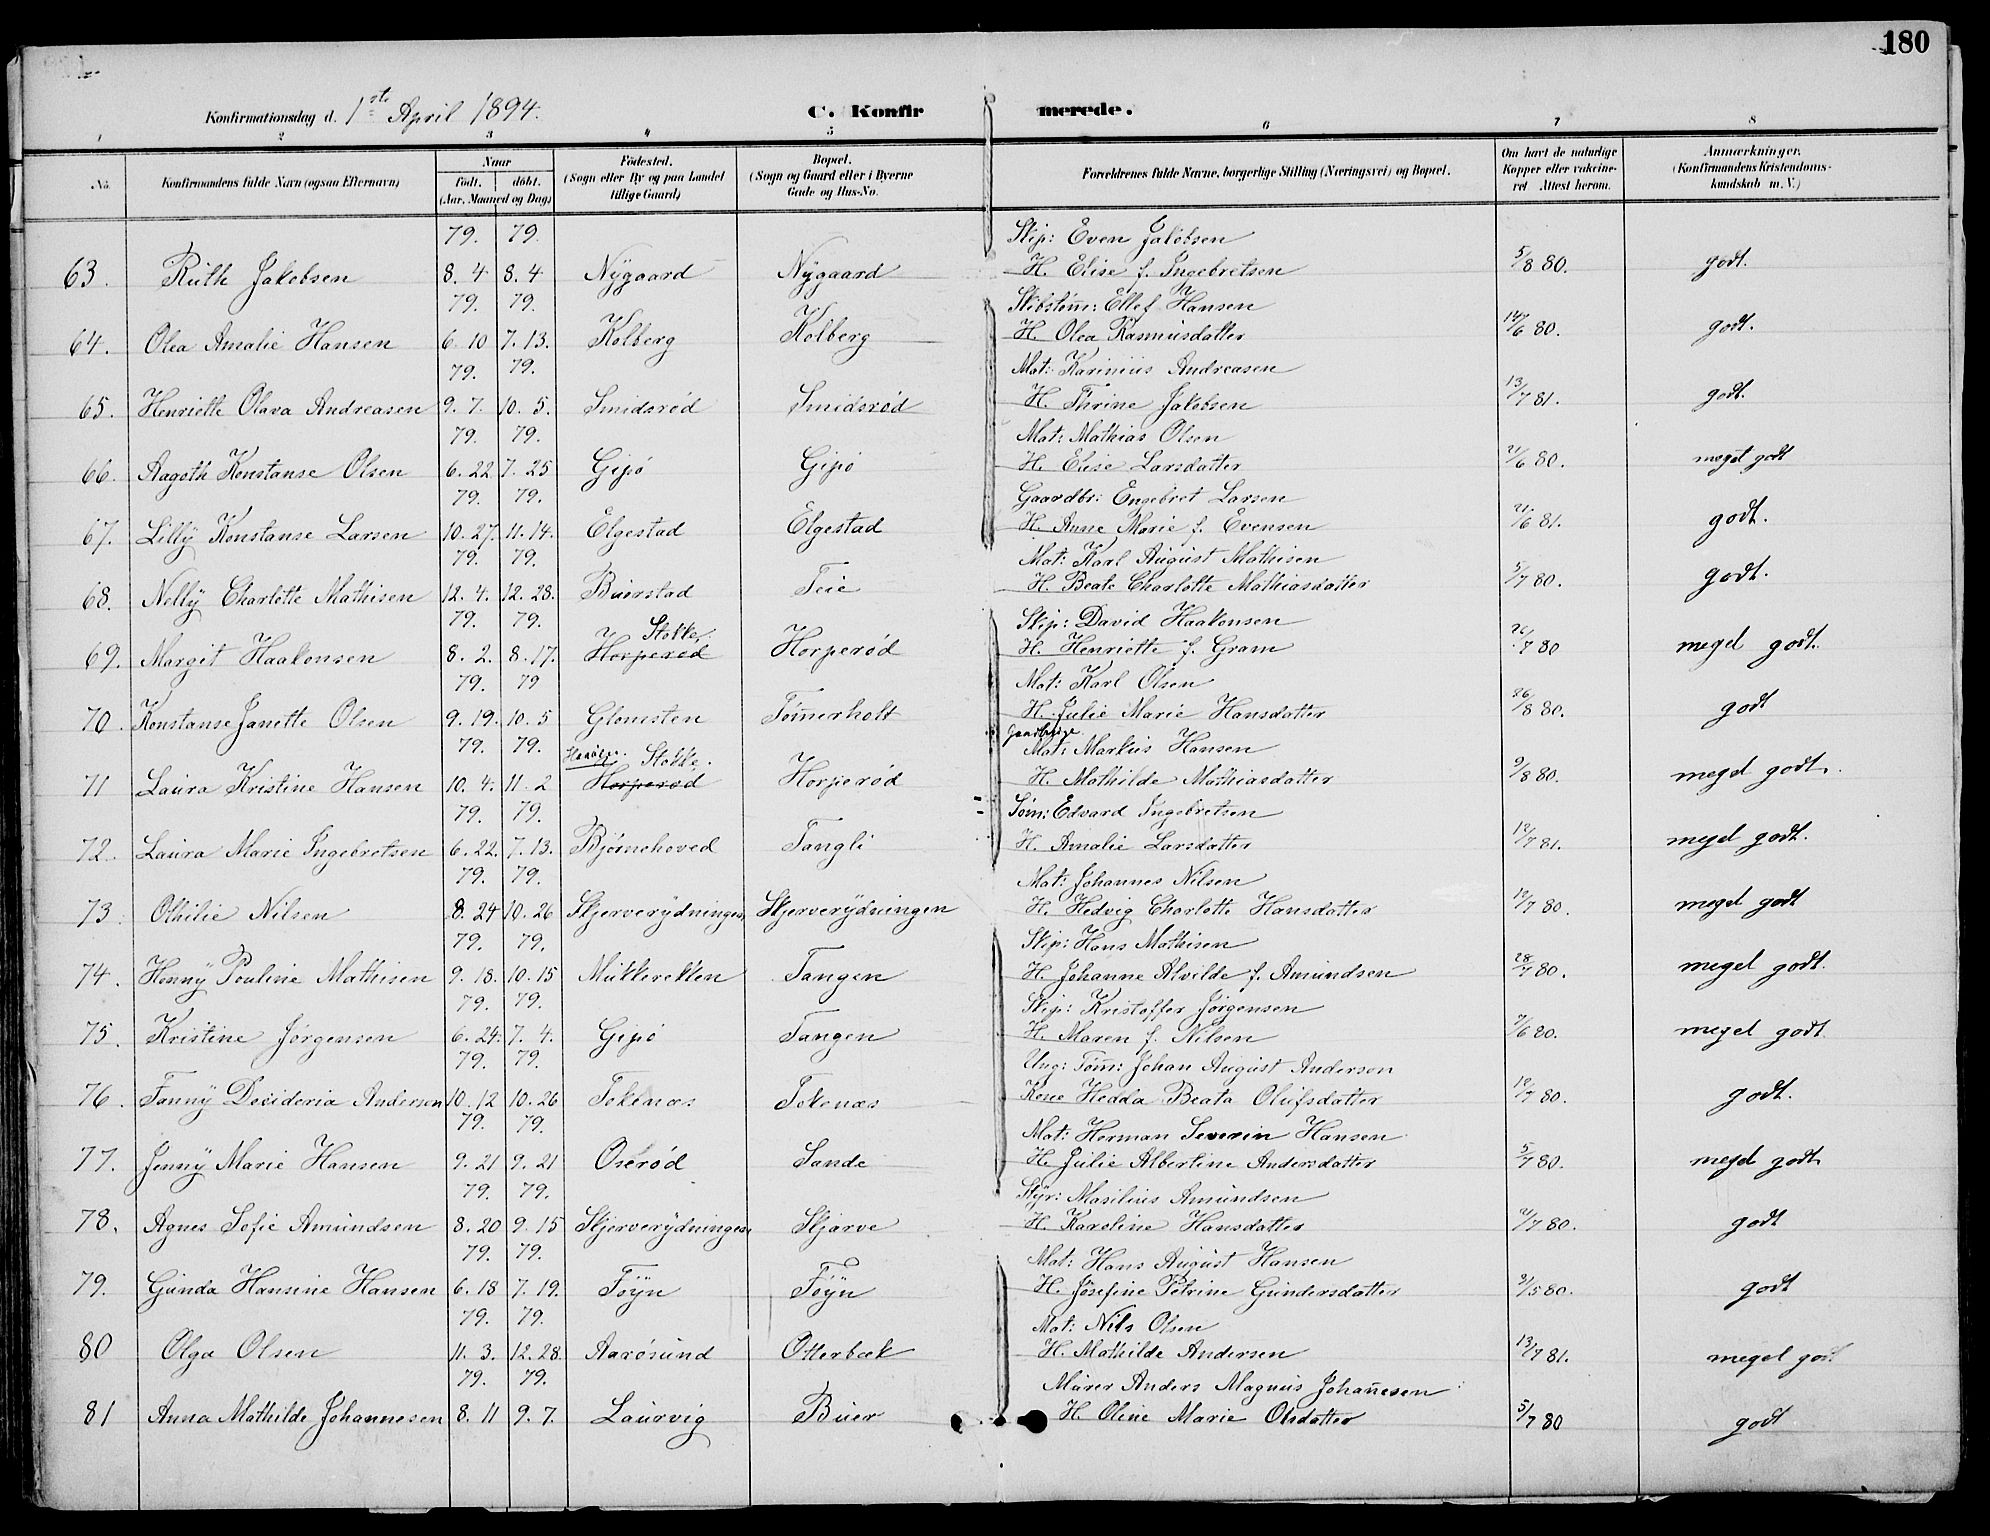 180
Konfirmationsdag d. 1ste April 1894.
C. Konfirmerede.
1 2 3 4 5 6 7 8
No. Konfirmandens fulde Navn (ogsaa Efternavn) Naar født. døbt. (Aar, Maaned og Dag) Fødested. (Sogn eller By og paa Landet tillige Gaard) Bopæl. (Sogn og Gaard eller i Byerne Gade og Hus-No. Forældrenes fulde Navne, borgerlige Stilling (Næringsvei) og Bopæl. Om havt de naturlige Kopper eller vakcineret Attest herom. Anmærkninger. (Konfirmandens Kristendomskundskab m. V.)
79. 79. Skip: Even Jakobsen
63. Ruth Jakobsen 8. 4 8. 4 Nygaard Nygaard H. Elise f. Ingebretsen 5/8 80. godt.
79. 79. Skibstøm: Ellef Hansen
64. Olea Amalie Hansen 6. 10 7. 13. Kolberg Kolberg H. Olea Rasmusdatter 14/6 80. godt.
79. 79. Mat: Karinius Andreasen
65. Henriette Olava Andreasen 9. 7. 10. 5. Smidsrød Smidsrød H. Thrine Jakobsen 13/7 81. godt.
79. 79. Mat: Mathias Olsen
66. Aagoth Konstanse Olsen 6. 22 7. 25 Gipø Gipø H. Elise Larsdatter 21/6 80. meget godt
79. 79. Gaardbr: Engebret Larsen
67. Lilly Konstanse Larsen 10. 27. 11. 14. Elgestad Elgestad H. Anne Marie f. Evensen 21/6 81. godt.
79. 79. Mat: Karl August Mathisen
68. Nelly Charlotte Mathisen 12. 4. 12. 28. Buerstad Teie H. Beate Charlotte Mathiasdatter 5/7 80. godt.
79. 79. Stokke. Skip: David Haakonsen
69. Margit Haakonsen 8. 2. 8. 17. Horperød Horperød H. Henriette f. Gram 26/7 80 meget godt.
79. 79 Mat: Karl Olsen
70. Konstanse Janette Olsen 9. 19. 10. 5 Glomsten Tømerholt H. Julie Marie Hansdatter 26/8 80. godt
79. 79. Stokke. Mat: Markus Hansen
71 Laura Kristine Hansen 10. 4. 11. 2 Horperød Horperød H. Mathilde Mathiasdatter 9/8 80. meget godt.
79. 79. Tøm: Edvard Ingebretsen
72. Laura Marie Ingebretsen 6. 22. 7. 13. Bjørnehoved Tangli H. Amalie Larsdatter 12/7 81. meget godt.
79. 79. Mat: Johannes Nilsen
73. Othilie Nilsen 8. 24 10. 26 Skjerverydningen Skjerverydningen H. Hedvig Charlotte Hansdatter 12/7 80. meget godt
79. 79. Skip: Hans Mathisen
74. Henny Pouline Mathisen 9. 18. 10. 15 Mukkerekken Tangen H. Johanne Alvilde f. Amundsen 28/7 80. meget godt.
79. 79. Skip: Kristoffer Jørgensen
75. Kristine Jørgensen 6. 24. 7. 4. Gipø Tangen H. Maren f. Nilsen 7/6 80. meget godt.
79. 79. Ung: Tøm: Johan August Anderson
76. Fanny Decideria Anderson 10. 12 10. 26 Tokenæs Tokenæs Kone Hedda Beata Olufsdatter 12/7 80. godt.
79. 79. Mat: Herman Severin Hansen
77. Jenny Marie Hansen 9. 21 9. 21 Oserød Sande H. Julie Albertine Andersdatter 5/7 80. meget godt
79. 79. Styr: Masilius Amundsen
78. Agnes Sofie Amundsen 8. 20 9. 15 Skjerverydningen Skjærve H. Karoline Hansdatter 2/7 80. godt
79. 79. Mat: Hans August Hansen
79. Gunda Hansine Hansen 6. 18 7. 19. Føyn Føyn H. Josefine Petrine Gundersdatter 3/5 80. godt
79. 79. Mat: Nils Olsen
80 Olga Olsen 11. 3. 12. 28. Aarøsund Otterbæk H. Mathilde Andersen 13/7 81. meget godt
79. 79. Murer Anders Magnus Johanesen
81 Anna Mathilde Johannesen 8. 11 9. 7. Laurvig Buer H. Oline Marie Olsdatter 5/7 80 godt